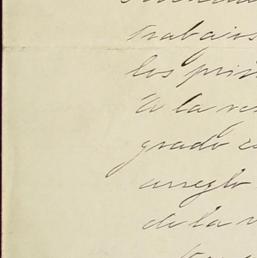 trabajos
los prin
a la ve
grado e
arreglo
de la